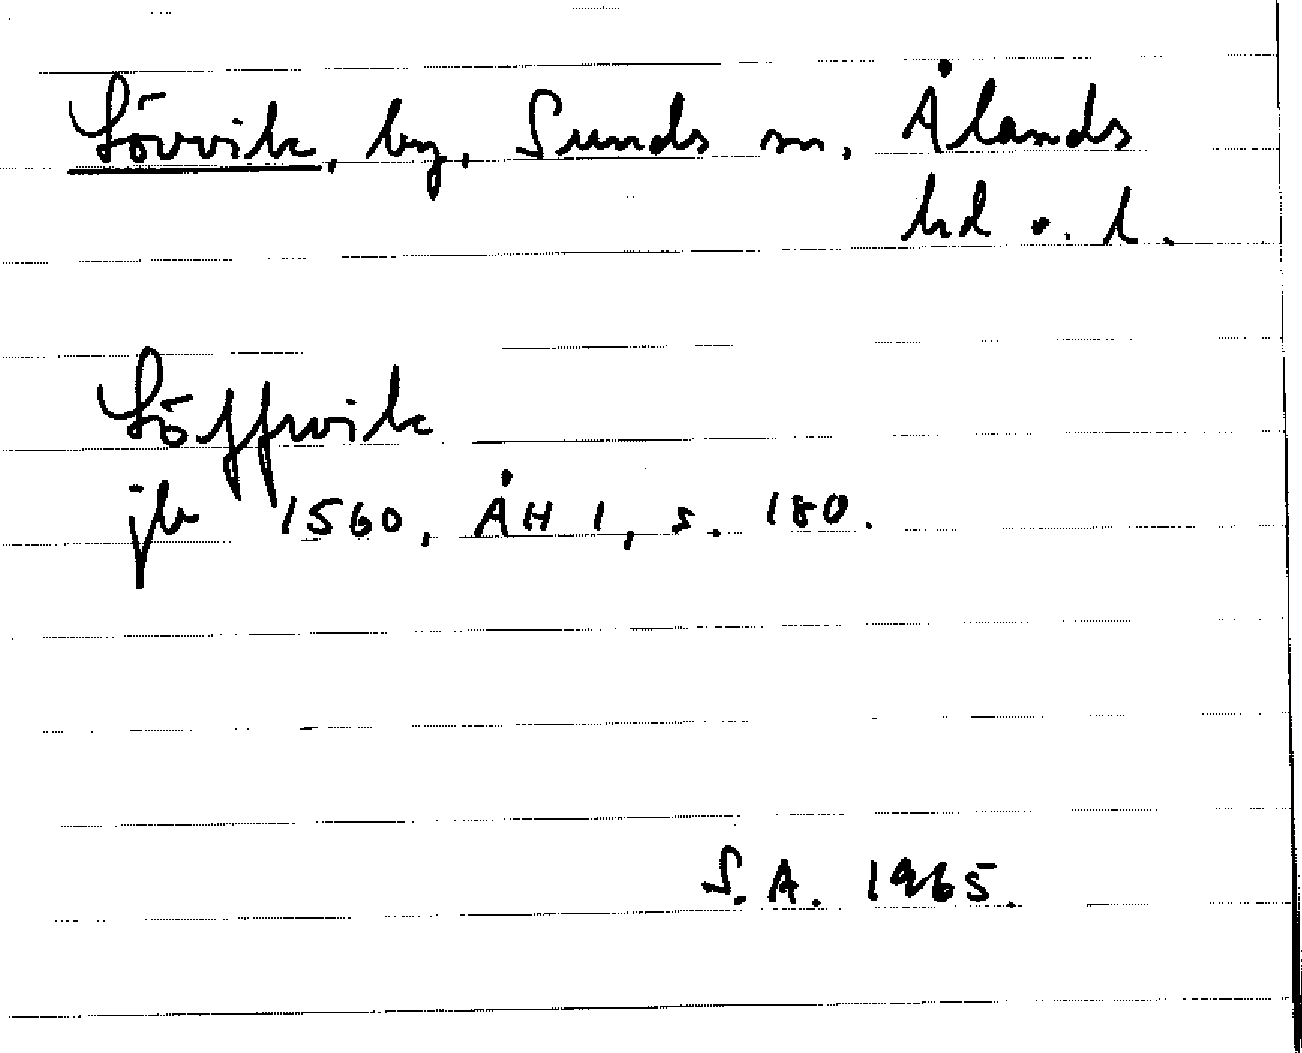 Lövvik, by, Sunds sn, Ålands
hd o. l.
Löffwik
jb 1560, ÅH 1, s. 180.
S.A. 1965.